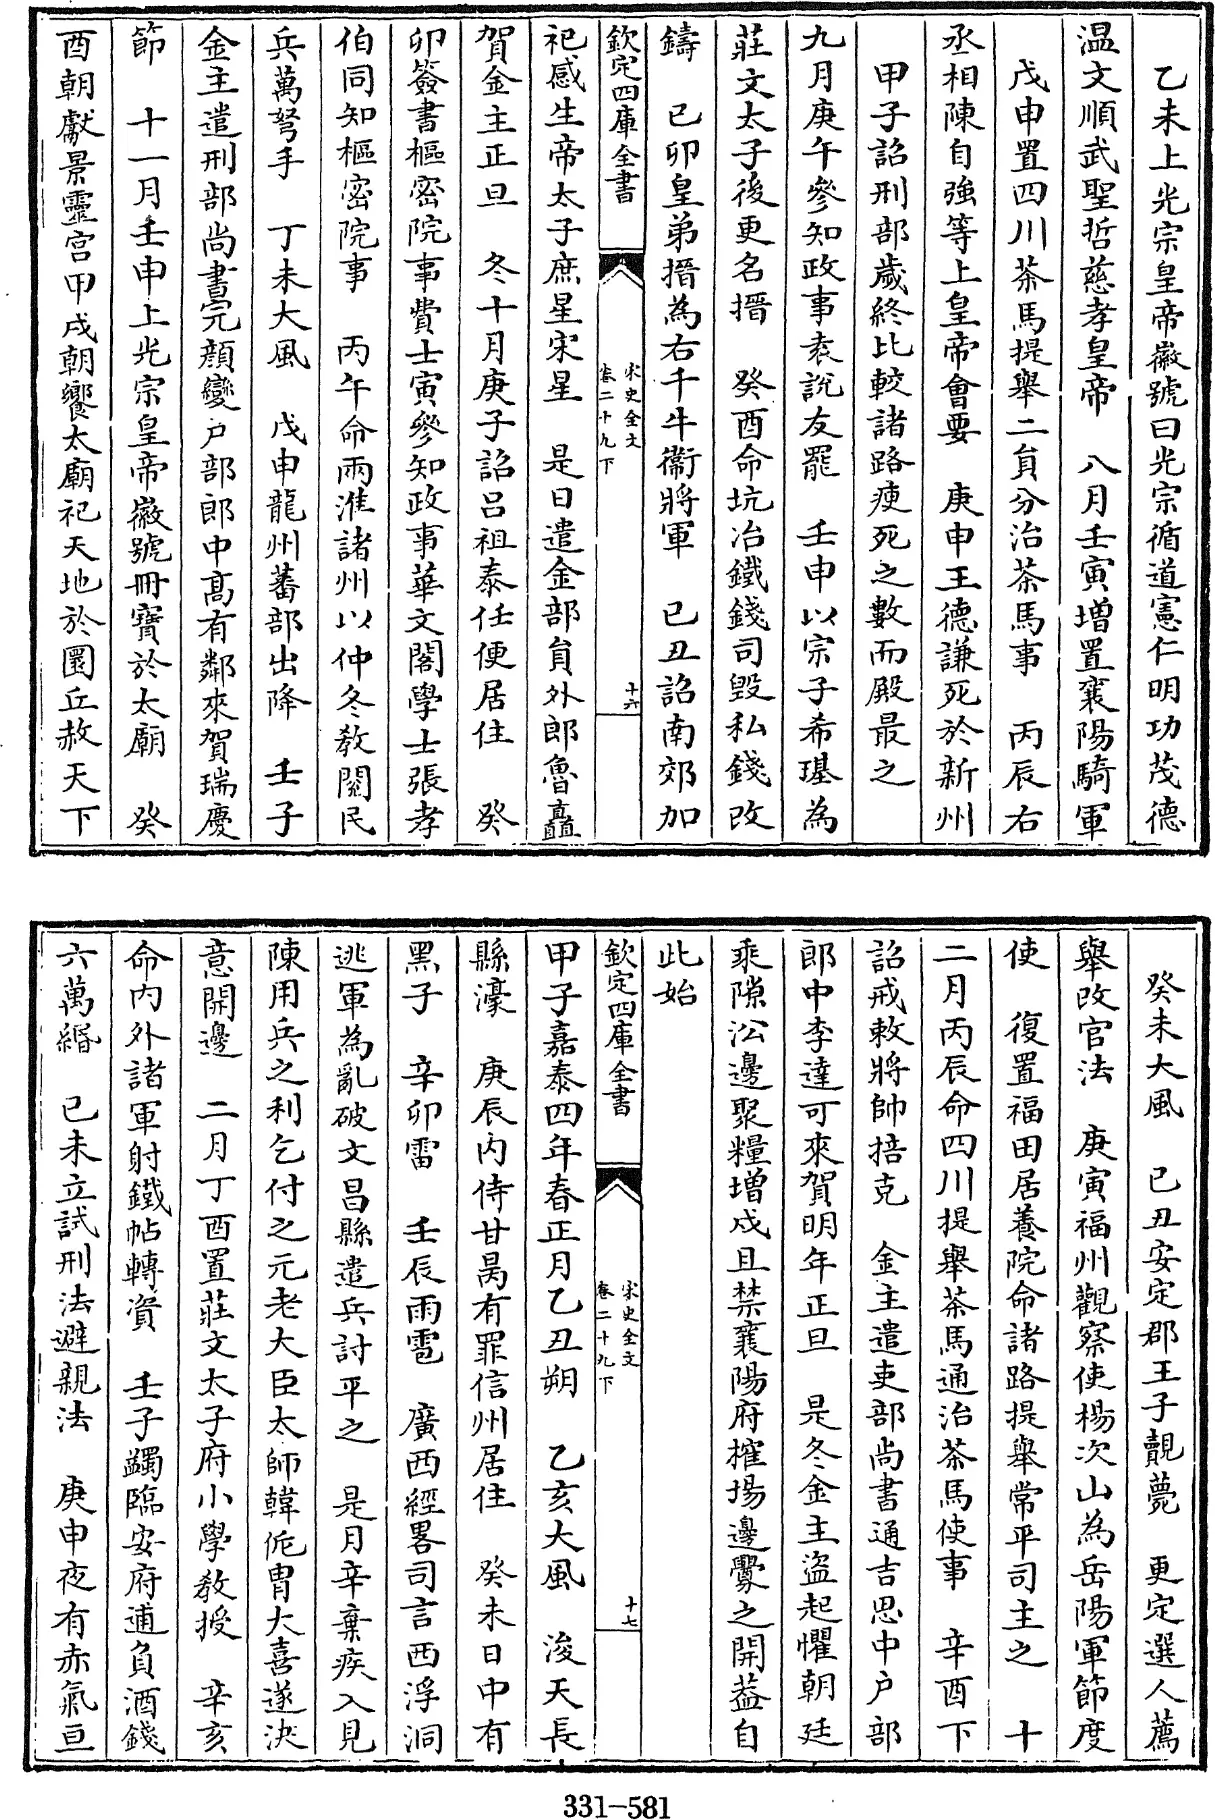 乙未上光宗皇帝徽號曰光宗循道憲仁明功茂德
温文順武聖哲慈孝皇帝　八月壬寅增置襄陽騎軍
戊申置四川茶馬提舉二員分治茶馬事　丙辰右
丞相陳自強等上皇帝會要　庚申王德謙死於新州
甲子詔刑部歲終比較諸路瘐死之數而殿最之
九月庚午參知政事袁說友罷　壬申以宗子希璂為
莊文太子後更名搢　癸酉命坑冶鐵錢司毀私錢改
鑄　已卯皇弟搢為右千牛衞將軍　已丑詔南郊加
欽定四庫全書　宋史全文卷二十九下　十六
祀感生帝太子庶星宋星　是日遣金部員外郎魯𠾸
賀金主正旦　冬十月庚子詔呂祖泰任便居住　癸
卯簽書樞密院事費士寅參知政事華文閣學士張孝
伯同知樞密院事　丙午命兩淮諸州以仲冬教閱民
兵萬弩手　丁未大風　戊申龍州蕃部出降　壬子
金主遣刑部尚書完顔變户部郎中高有鄰來賀瑞慶
節　十一月壬申上光宗皇帝徽號冊寶於太廟　癸
酉朝獻景靈宫甲戌朝饗太廟祀天地於圜丘赦天下
癸未大風　已丑安定郡王子覿薨　更定選人薦
舉改官法　庚寅福州觀察使楊次山為岳陽軍節度
使　復置福田居養院命諸路提舉常平司主之　十
二月丙辰命四川提舉茶馬通治茶馬使事　辛酉下
詔戒敕將帥掊克　金主遣吏部尚書通吉思中户部
郎中李達可來賀明年正旦　是冬金主盗起懼朝廷
乘隙㳂邊聚糧增戍且禁襄陽府榷場邊釁之開葢自
此始
欽定四庫全書　宋史全文卷二十九下　十七
甲子嘉泰四年春正月乙丑朔　乙亥大風　浚天長
縣濠　庚辰内侍甘昺有罪信州居住　癸未日中有
黑子　辛卯雷　壬辰雨雹　廣西經畧司言西浮洞
逃軍為亂破文昌縣遣兵討平之　是月辛棄疾入見
陳用兵之利乞付之元老大臣太師韓侂胄大喜遂決
意開邊　二月丁酉置莊文太子府小學教授　辛亥
命内外諸軍射鐵帖轉資　壬子蠲臨安府逋負酒錢
六萬緡　已未立試刑法避親法　庚申夜有赤氣亘
331-581